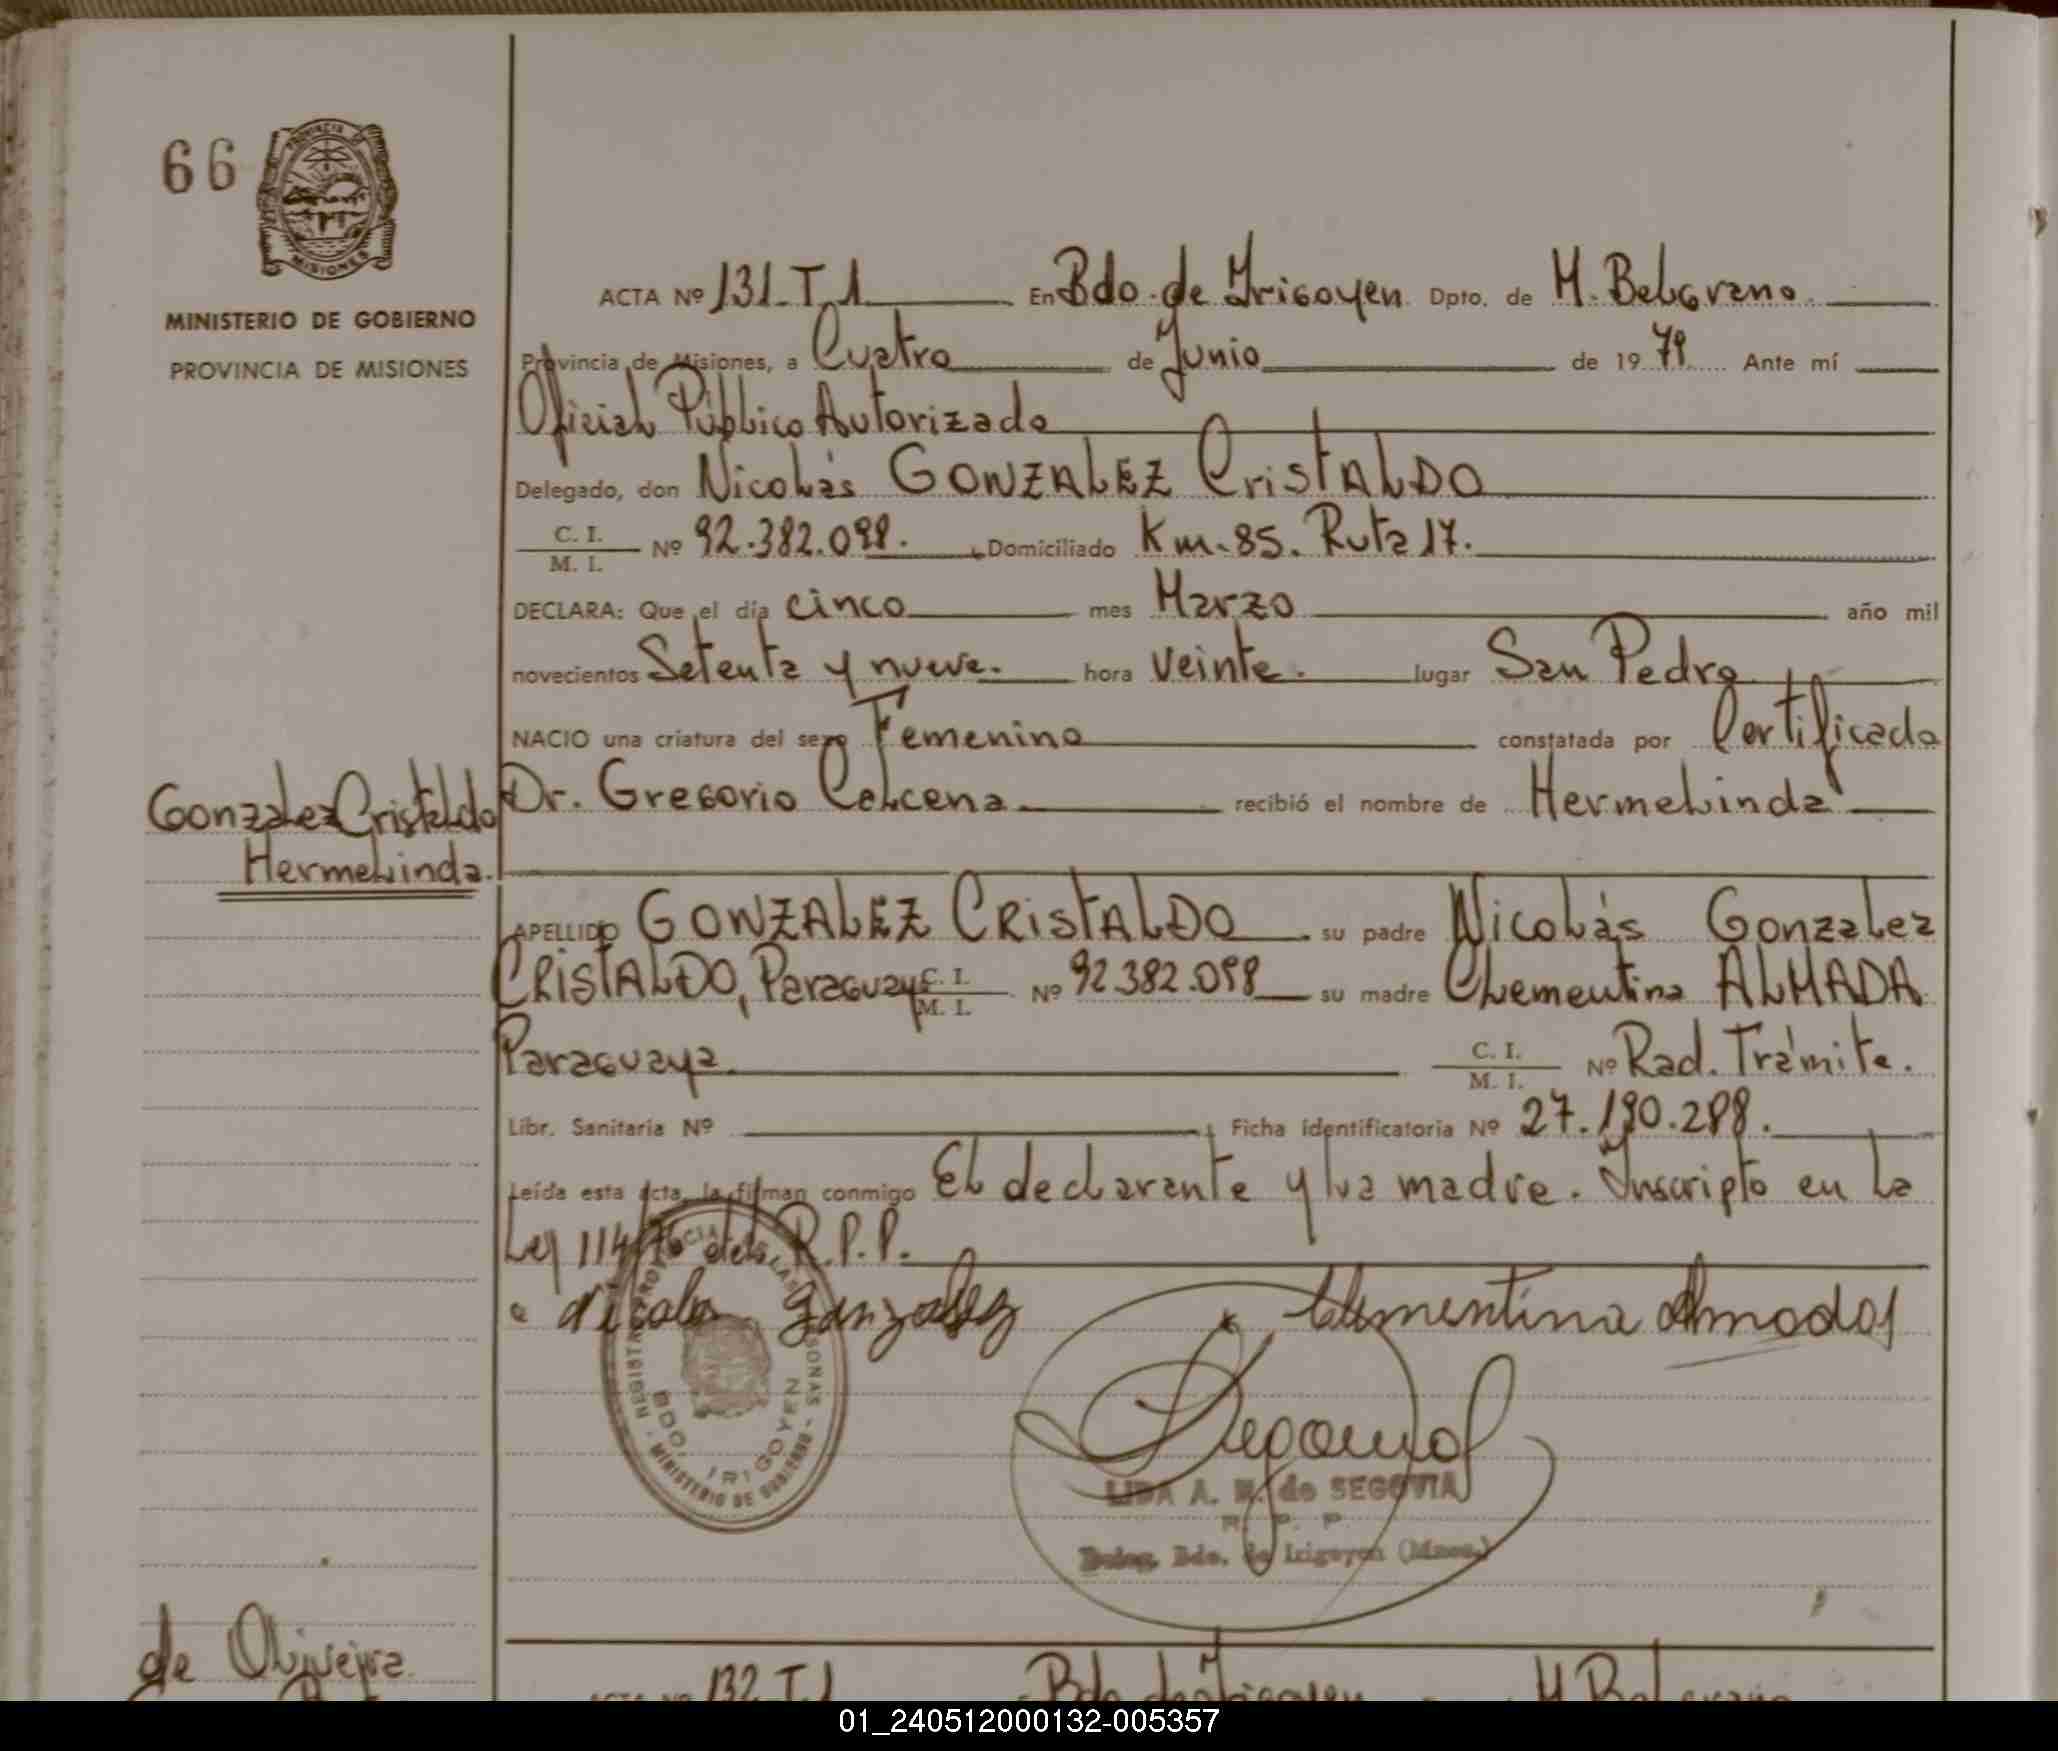 66
PROVINCIA DE
MISIONES
MINISTERIO DE GOBIERNO
PROVINCIA DE MISIONES
ACTA Nº 131-T.1 En Bdo. de Irigoyen Dpto. de M. Belgrano
Provincia de Misiones, a Cuatro de Junio de 19 79 Ante mí
Oficial Público Autorizado
Delegado, don Nicolás GONZALEZ CRISTALDO
C. I.
M. I. Nº 92.382.098. Domiciliado Km. 85. Ruta 17.
DECLARA: Que el día cinco mes Marzo año mil
novecientos Setenta y nueve. hora veinte. lugar San Pedro
NACIO una criatura del sexo Femenino constatada por Certificado
Dr. Gregorio Calcena recibió el nombre de Hermelinda
Gonzalez Cristaldo
Hermelinda.
APELLIDO GONZALEZ CRISTALDO su padre Nicolás Gonzalez
CRISTALDO, Paraguayo C. I. M. I. Nº 92.382.098 su madre Clementina ALMADA
Paraguaya. C. I. M. I. Nº Rad. Trámite.
Libr. Sanitaria Nº Ficha identificatoria Nº 27.190.288.
Leída esta acta, la firman conmigo El declarante y la madre. Inscripto en la
Ley 114/76 del R.P.P.
Nicolas Gonzalez Clementina Almada
REGISTRO PROVINCIAL DE LAS PERSONAS
BDO. IRIGOYEN
MINISTERIO DE GOBIERNO
LIDA A. M. de SEGOVIA
R. P. P.
Deleg. Bdo. de Irigoyen (Mnes.)
de Oliveira
ACTA Nº 132-T.1 Bdo. de Irigoyen M. Belgrano
01_240512000132-005357